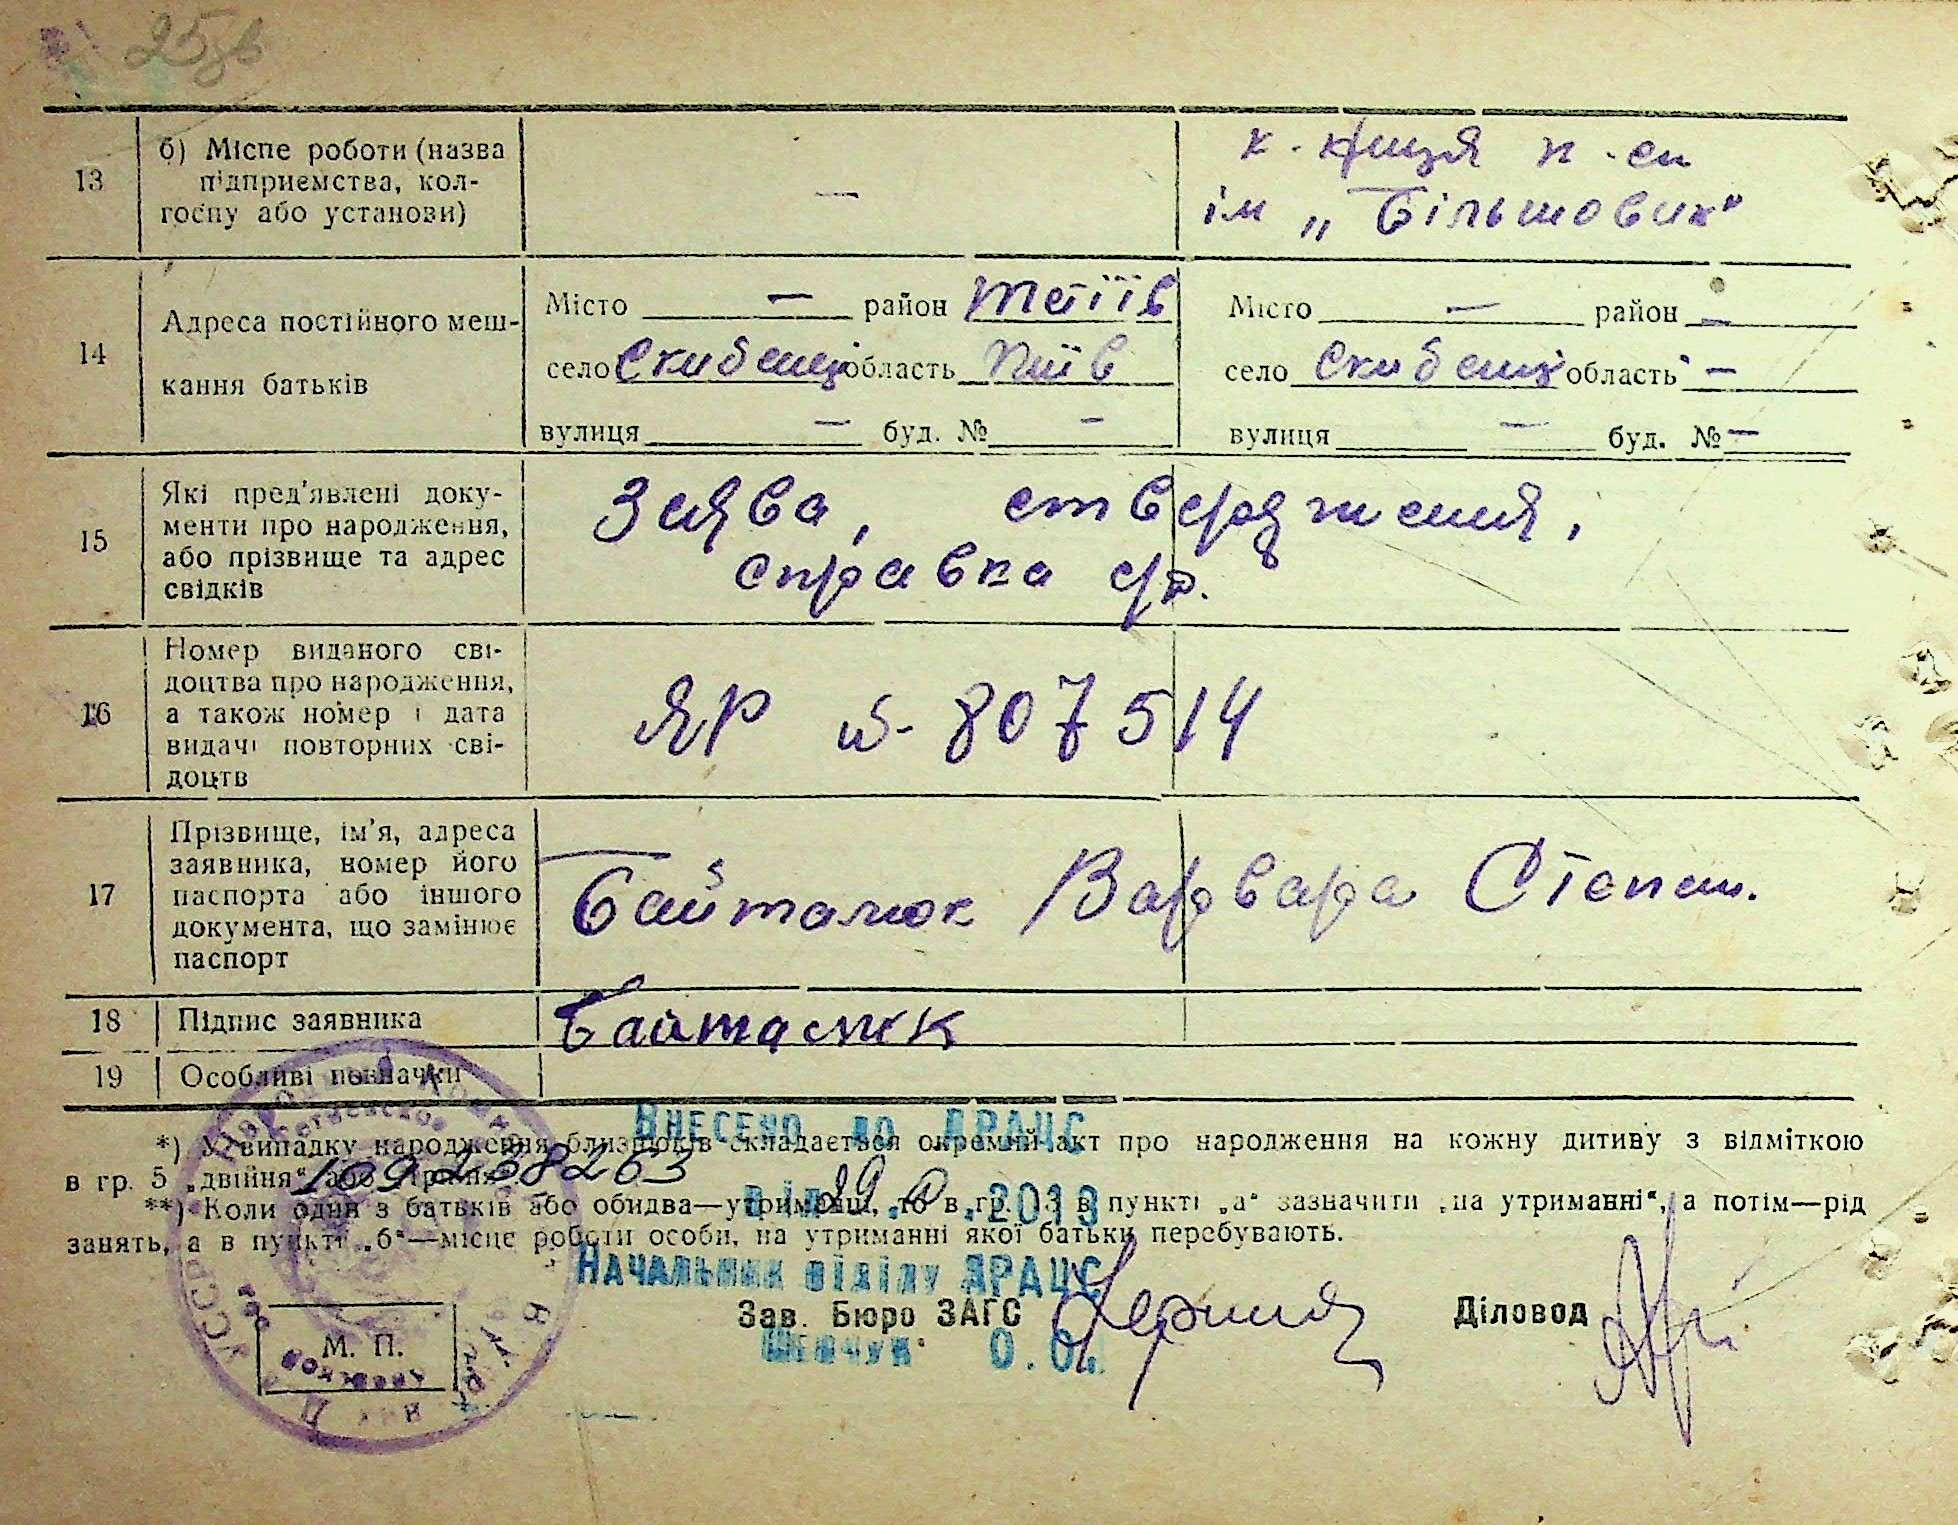 13
б) Місце роботи (назва
підприємства, кол-
госпу або установи)
—
к.
ім „Більшовик"
14
Адреса постійного меш-
кання батьків
Місто — район Тетіїв
село Скибенці область Київ
вулиця — буд. № —
Місто — район —
село Скибенці область —
вулиця — буд. № —
15
Які пред'явлені доку-
менти про народження,
або прізвище та адрес
свідків
Заява, ствердження,
справка с/р.
16
Номер виданого сві-
доцтва про народження,
а також номер і дата
видачі повторних сві-
доцтв
ЯР № 807514
17
Прізвище, ім'я, адреса
заявника, номер його
паспорта або іншого
документа, що замінює
паспорт
Байталюк Варвара Степан.
18
Підпис заявника
Байталюк
19
Особливі позначки
Внесено до ДРАЦС
*) У випадку народження близнюків складається окремий акт про народження на кожну дитину з відміткою
в гр. 5 „двійня" або
**) Коли один з батьків або обидва—утриманці, то в гр. 13 в пункті „а" зазначити „на утриманні", а потім—рід
від 2013
занять, а в пункті „б"—місце роботи особи, на утриманні якої батьки перебувають.
Начальник відділу ДРАЦС
Зав. Бюро ЗАГС
Діловод
Шевчук О.О.
М. П.
УССР